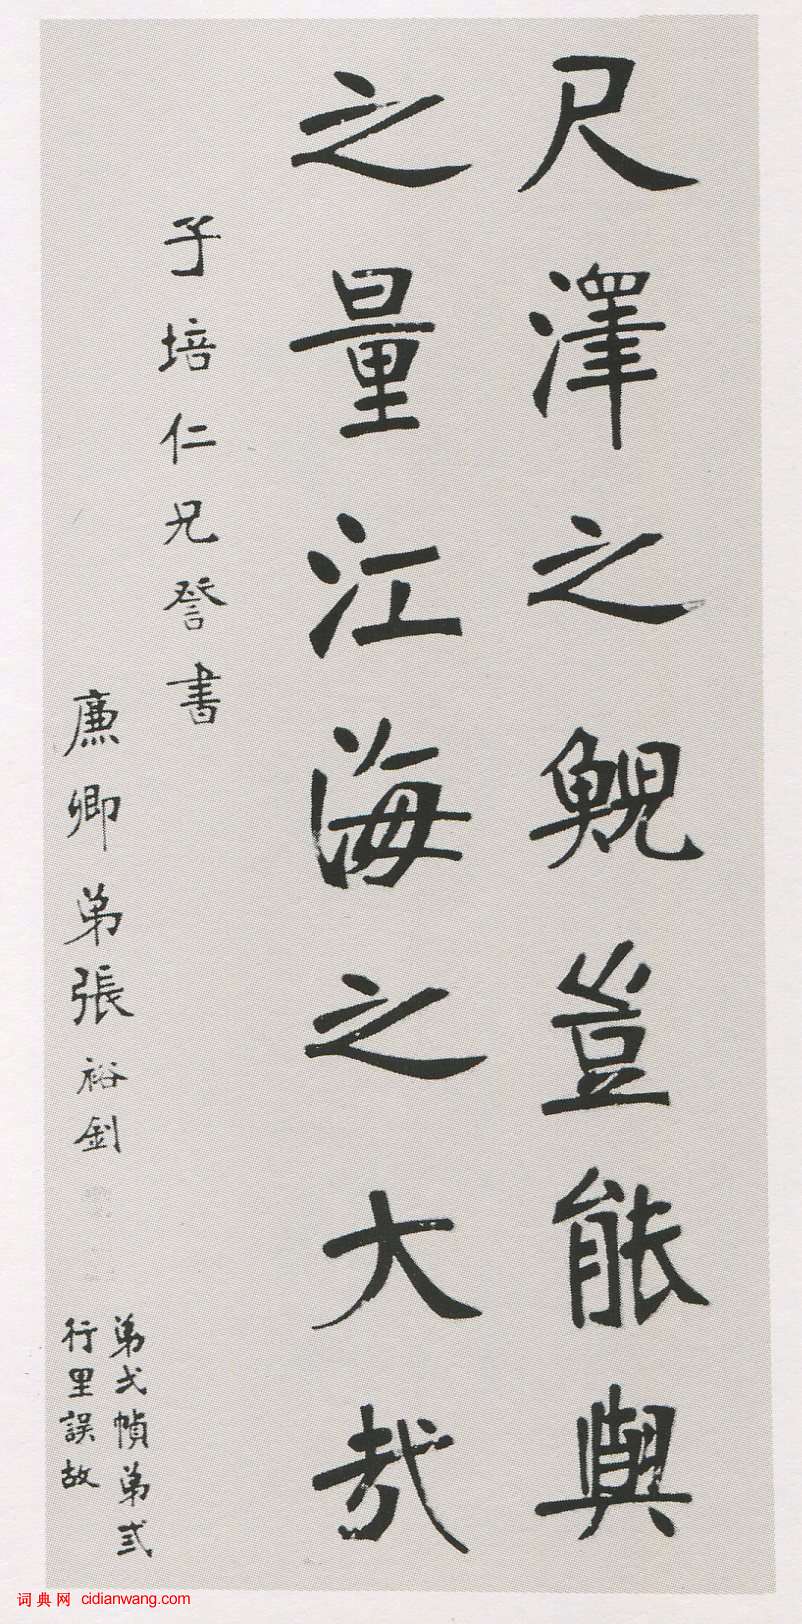 尺澤之鯢豈能與
之量江海之大哉
子培仁兄詧書
廉卿弟張裕釗
弟弌幀弟弍
行里誤故
词典网 cidianwang.com